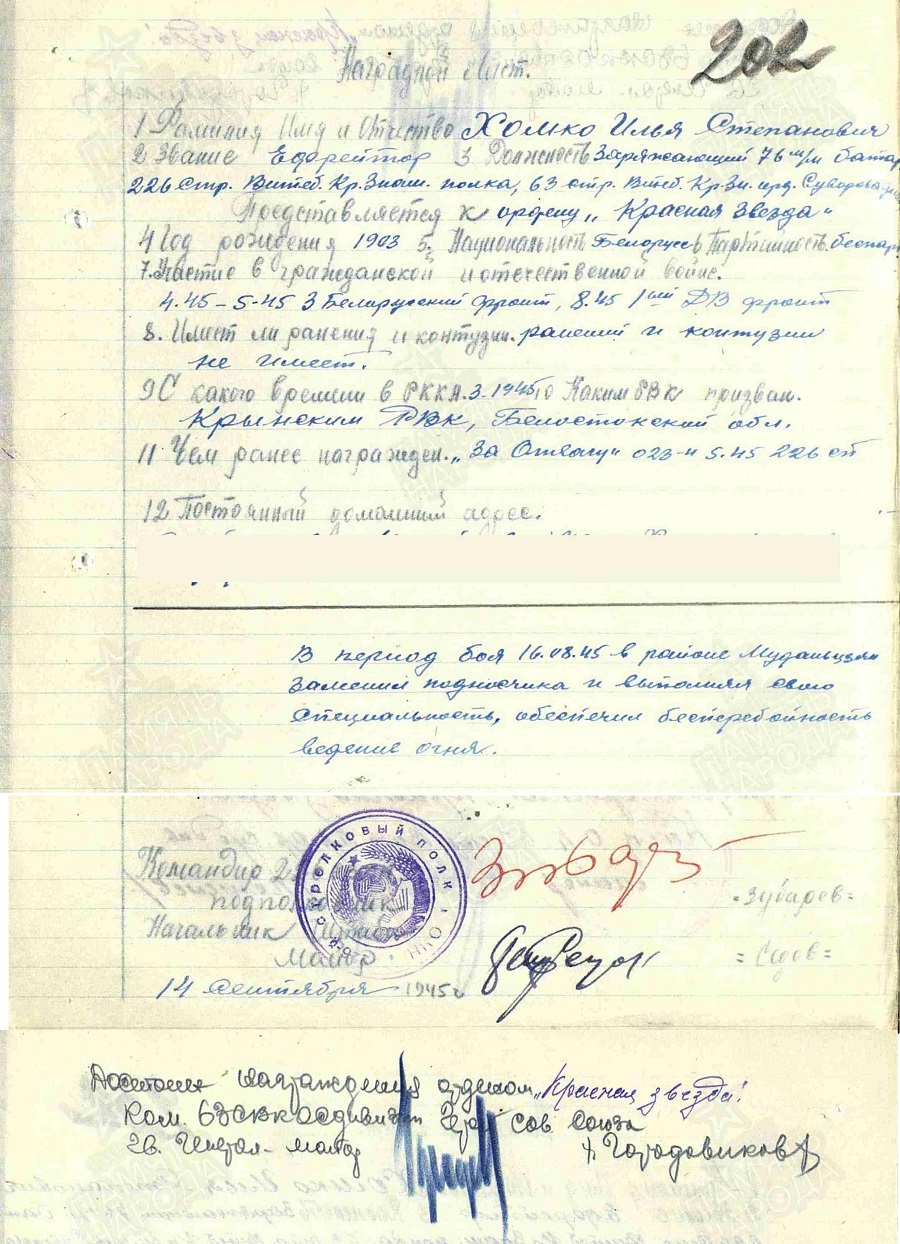 202
Наградной Лист.
1 Фамилия Имя и Отчество Хомко Илья Степанович
2 Звание Ефрейтор 3 Должность Заряжающий 76 м/м батар
226 Стр. Витеб. Кр.Знам. полка, 63 стр. Витеб. Кр.Зн. орд. Суворова
Представляется к ордену „Красная Звезда"
4 Год рождения 1903 5. Национальность Белорусс 6 Партийность беспар
7. Участие в гражданской и отечественной войне.
4.45-5-45 3 Белорусский фронт, 8.45 1ый ДВ фронт
8. Имеет ли ранения и контузии. ранений и контузии
не имеет.
9 С какого времени в РККА. 3.1945 10 Каким РВК призван.
Крынским РВК, Белостокской обл.
11 Чем ранее награжден. „За Отвагу" 023-н 5.45 226 сп
12 Постоянный домашний адрес.
В период боя 16.08.45 в районе Муданьцзян
заменил подносчика и выполняя свою
специальность, обеспечил бесперебойность
ведение огня.
СТРЕЛКОВЫЙ ПОЛК НКО
Командир 2
подполковник =Зубарев=
Начальник Штаба
Майор =Седов=
14 Сентября 1945 г
Достоин награждения орденом „Красная звезда!
Ком. 63 СВККОС дивизии Герой Сов Союза
гв. Генерал-майор /Городовиков/
ПАМЯТЬ НАРОДА